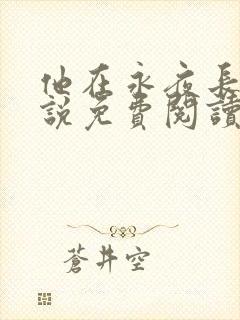 他在永夜長
說免費閱讀
蒼井空